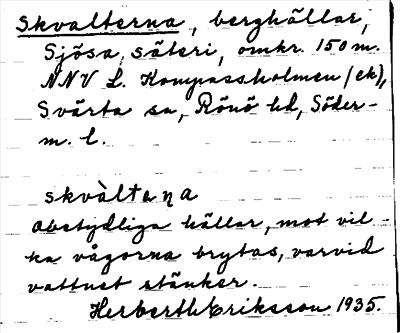 Skvalterna, berghällar,
Sjösa, säteri, omkr. 150 m.
NNV L. Kompassholmen (ek),
Svärta sn, Rönö hd, Söder-
m. l.
skvàltaṇa
obetydliga hällar, mot vil-
ka vågorna brytas, varvid
vattnet stänker.
Herberth Eriksson 1935.